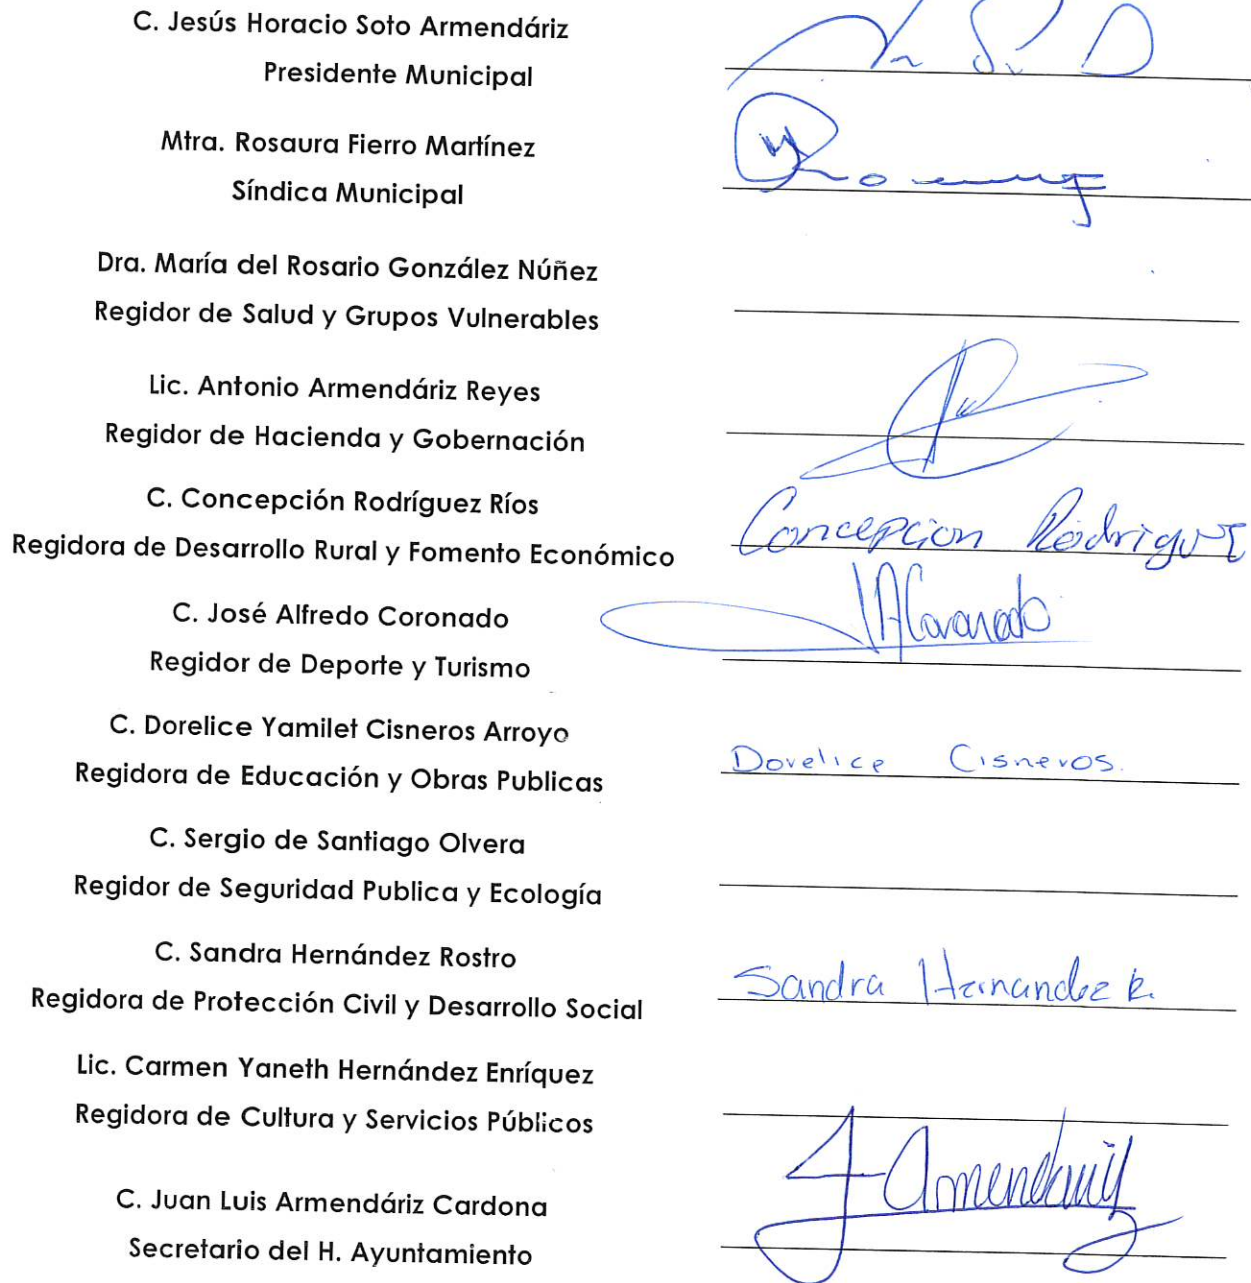 C. Jesús Horacio Soto Armendáriz
Presidente Municipal
Mtra. Rosaura Fierro Martínez
Síndica Municipal
Dra. María del Rosario González Núñez
Regidor de Salud y Grupos Vulnerables
Lic. Antonio Armendáriz Reyes
Regidor de Hacienda y Gobernación
C. Concepción Rodríguez Ríos
Concepcion Rodriguez
Regidora de Desarrollo Rural y Fomento Económico
C. José Alfredo Coronado
JACoronado
Regidor de Deporte y Turismo
C. Dorelice Yamilet Cisneros Arroyo
Dorelice Cisneros.
Regidora de Educación y Obras Publicas
C. Sergio de Santiago Olvera
Regidor de Seguridad Publica y Ecología
C. Sandra Hernández Rostro
Sandra Hernandez R.
Regidora de Protección Civil y Desarrollo Social
Lic. Carmen Yaneth Hernández Enríquez
Regidora de Cultura y Servicios Públicos
C. Juan Luis Armendáriz Cardona
Secretario del H. Ayuntamiento